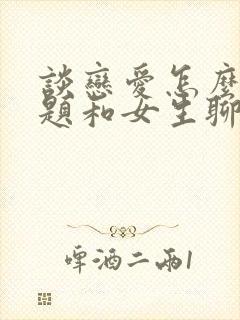 談戀愛怎麼
題和女生聊
啤酒二兩1